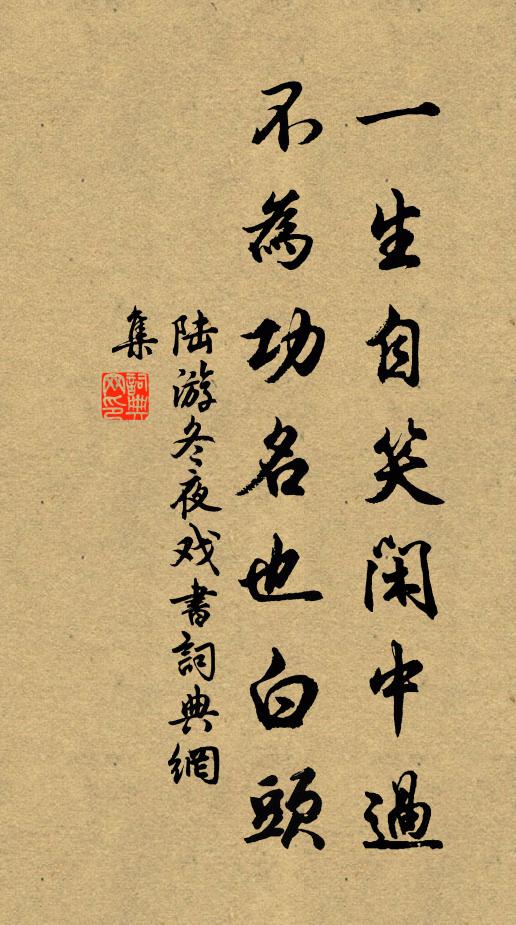 一生自笑闲中過
不為功名也白頭
陆游冬夜戏書詞典網
集
詞典網印